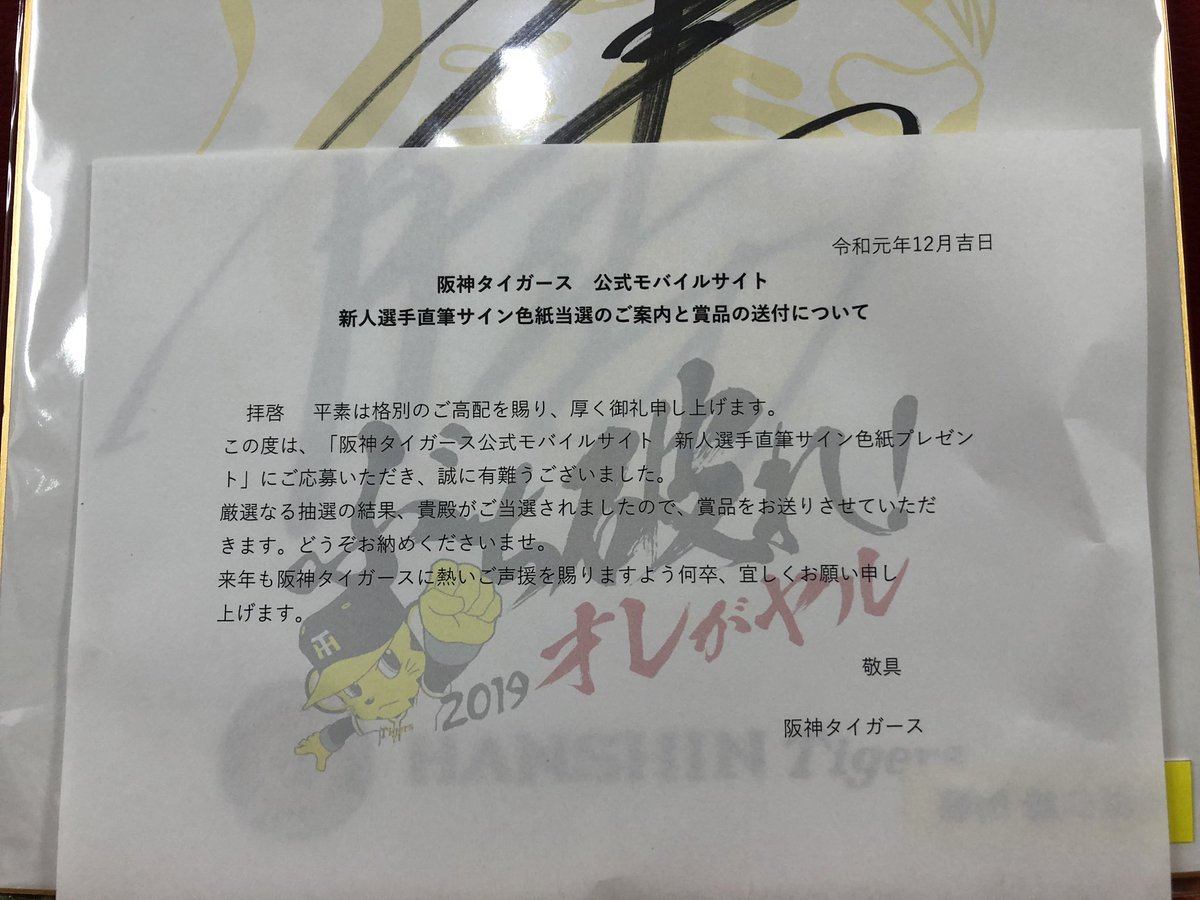 令和元年12月吉日
阪神タイガース　公式モバイルサイト
新人選手直筆サイン色紙当選のご案内と賞品の送付について
拝啓　平素は格別のご高配を賜り、厚く御礼申し上げます。
この度は、「阪神タイガース公式モバイルサイト　新人選手直筆サイン色紙プレゼン
ト」にご応募いただき、誠に有難うございました。
厳選なる抽選の結果、貴殿がご当選されましたので、賞品をお送りさせていただ
きます。どうぞお納めくださいませ。
来年も阪神タイガースに熱いご声援を賜りますよう何卒、宜しくお願い申し
上げます。
敬具
阪神タイガース
ぶち破れ!
オレがヤル
2019
TH
HANSHIN Tigers